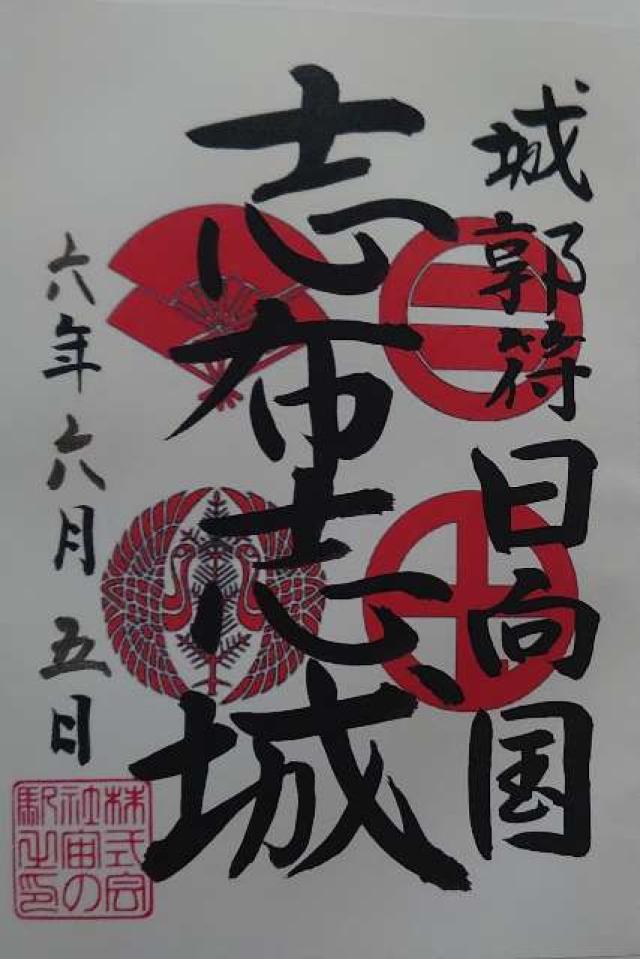 城郭符 日向国
志布志城
六年六月五日
株式会
社宙の
駅之印